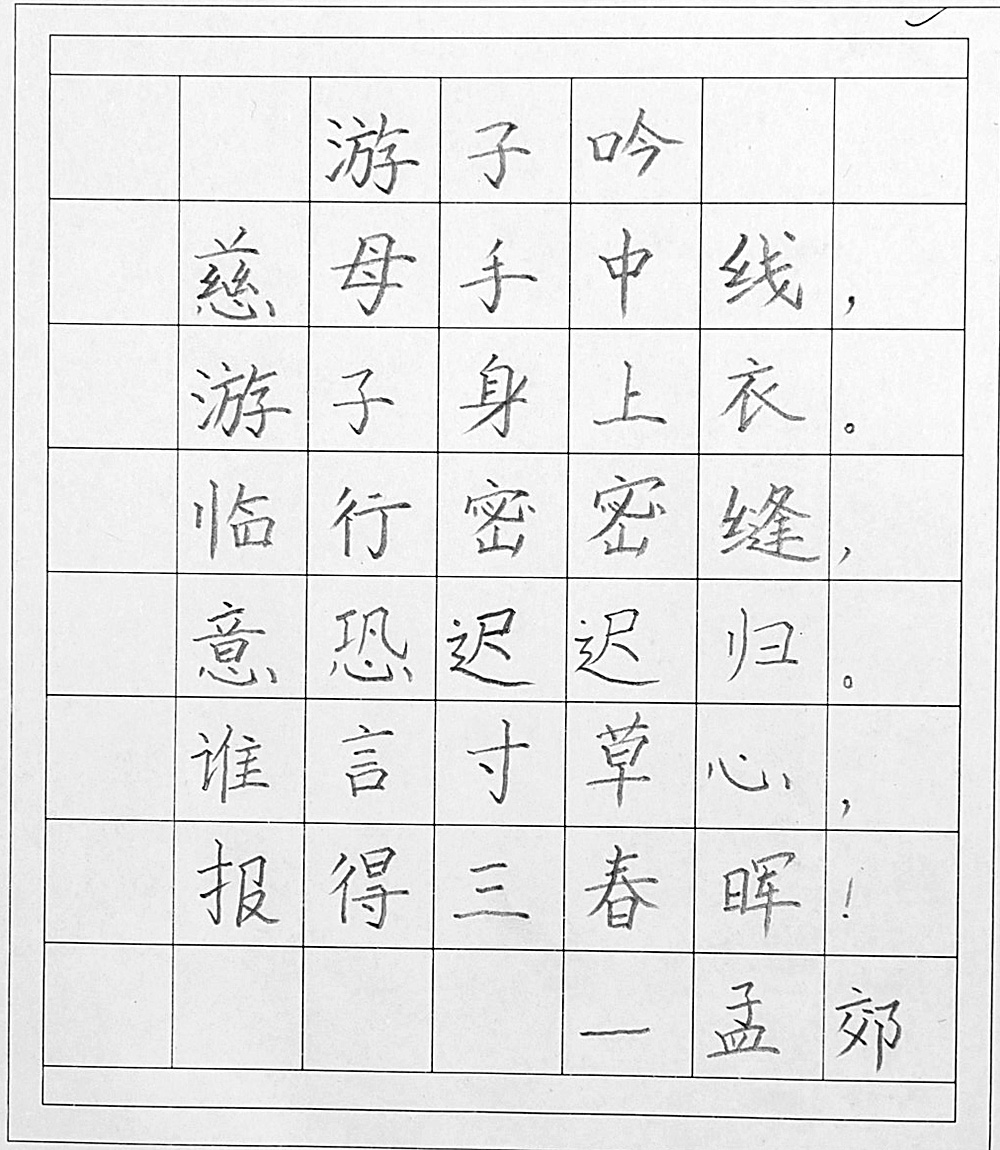 游子吟
慈母手中线，
游子身上衣。
临行密密缝，
意恐迟迟归。
谁言寸草心，
报得三春晖！
—孟郊